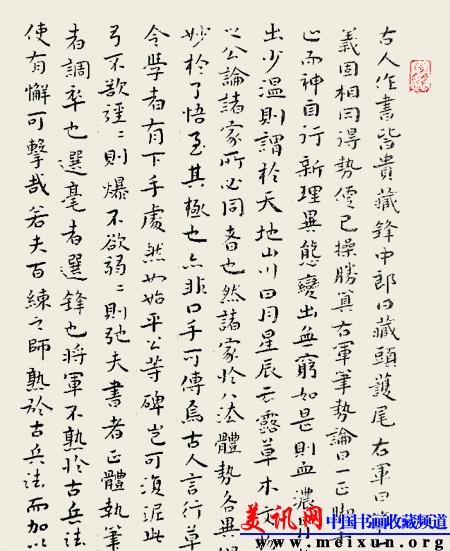 古人作書皆貴藏鋒中郎曰藏頭護尾右軍曰
義固相同得勢便已操勝算右軍筆勢論曰一正腳
心而神自行新理異態變出無窮如是則血濃
出少溫則謂於天地山川日月星辰雲露草木
以公論諸家所必同者也然諸家於八法體勢各異
妙於了悟至其極也亦非口手可傳焉古人言行草
令學者有下手處然如始平公等碑豈可復泥此
弓不欲勁二則爆不欲弱二則弛夫書者正體執筆
者調率也選毫者選鋒也將軍不熟於古兵法
使有懈可擊哉若夫百練之師熟於古兵法而加以
美讯网 中国书画收藏频道
www.meixun.org